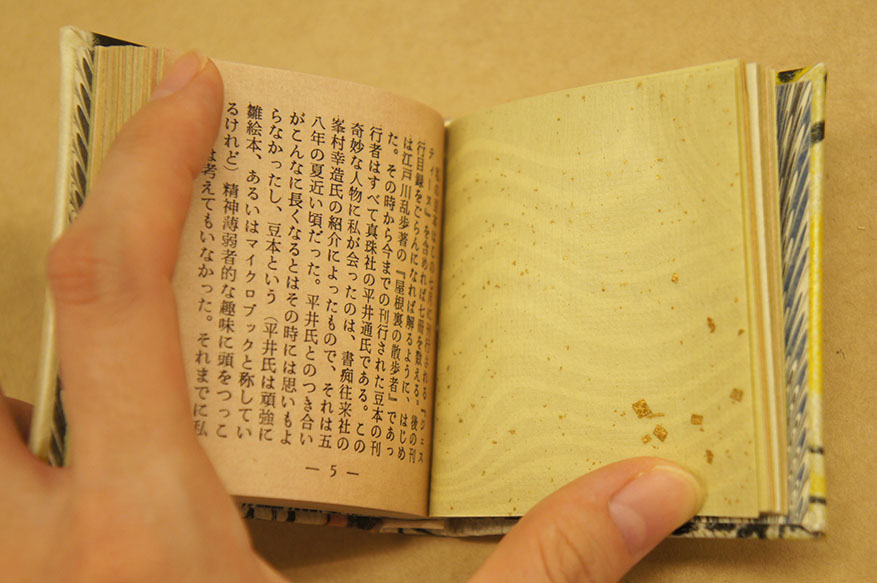 この七月に刊行される『ジェス
ティーヌ』を含めれば七冊を数える。後の刊
行目録をごらんになれば解るように、はじめ
は江戸川乱歩著の『屋根裏の散歩者』であっ
た。その時から今までの刊行された豆本の刊
行者はすべて真珠社の平井通氏である。この
奇妙な人物に私が会ったのは、書痴往来社の
峯村幸造氏の紹介によったもので、それは五
八年の夏近い頃だった。平井氏とのつき合い
がこんなに長くなるとはその時には思いもよ
らなかったし、豆本という（平井氏は頑強に
雛絵本、あるいはマイクロブックと称してい
るけれど）精神薄弱者的な趣味に頭をつっこ
は考えてもいなかった。それまでに私
— 5 —